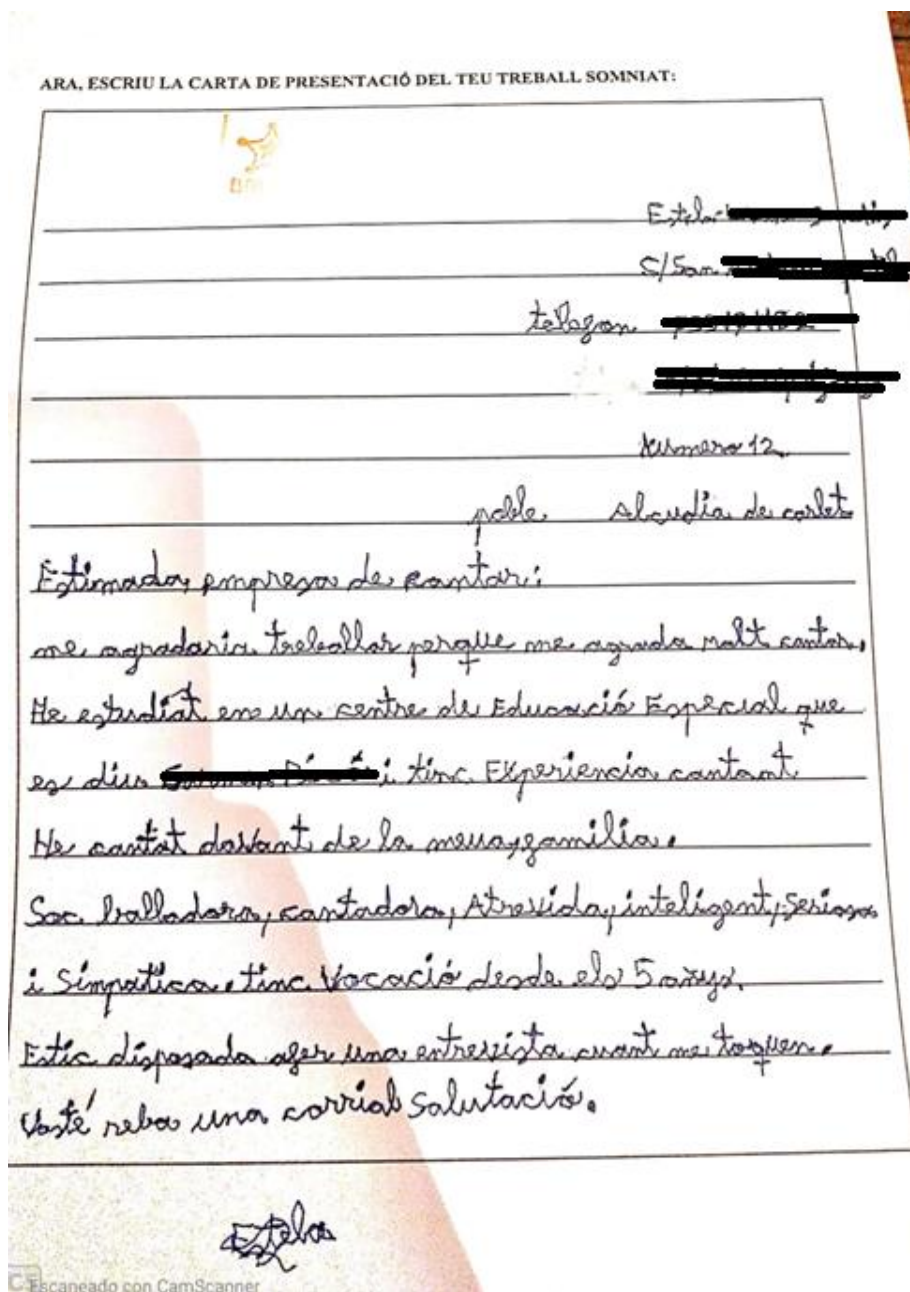 ARA, ESCRIU LA CARTA DE PRESENTACIÓ DEL TEU TREBALL SOMNIAT:
Estela
C/San
telagon
Numero 12
poble Alcudia de carlet
Estimada, empresa de cantar:
me agradaria treballar perque me agrada molt cantar.
He estudiat en un centre de Educació Especial que
es diu i tinc Experiencia cantant
He cantat davant de la meua familia.
Soc balladora, cantadora, Atrevida, inteligent, Seriosa
i Simpatica. tinc Vocació desde els 5 anys.
Estic disposada afer una entrevista cuant me toquen.
Vosté reba una corrial Salutació.
Estela
Escaneado con CamScanner